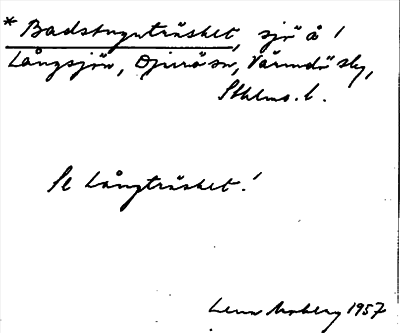 * Badstuguträsket, sjö å !
Långsjön, Djurö sn, Värmdö skg,
Sthlms. l.
Se Långträsket!
Lena Moberg 1957